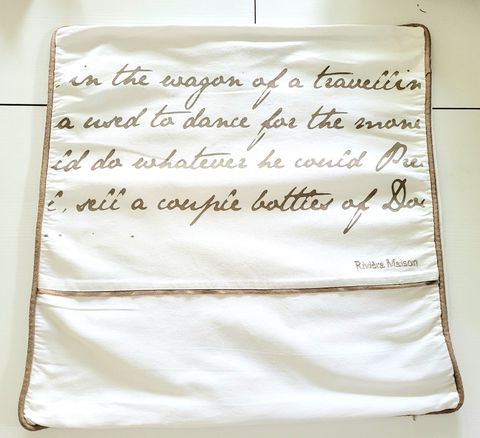 in the wagon of a travellin
a used to dance for the mone
id do whatever he could Pre
l, sell a couple bottles of Do
Rivièra Maison